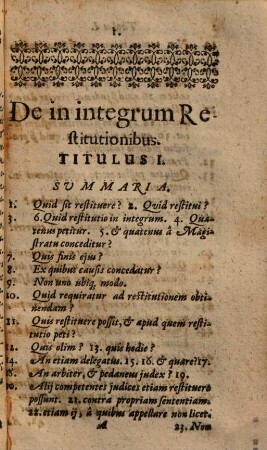 1.
De in integrum Re-
stitutionibus.
TITULUS I.
SUMMARIA.
1. Quid sit restituere? 2. Qvid restitui?
3. 6. Quid restitutio in integrum. 4. Qua-
tenus petitur. 5. & quatenus â Magi-
stratu conceditur?
7. Quis finis ejus?
8. Ex quibus causis concedatur?
9. Non uno ubiq. modo.
10. Quid requiratur ad restitutionem obti-
nendam?
11. Quis restituere possit, & apud quem resti-
tutio peti?
12. Quis olim? 13. quis hodie?
14. An etiam delegatus. 15. 16. & quare? 17.
18. An arbiter, & pedaneus judex? 19.
20. Alij competentes judices etiam restituere
possunt. 21. contra propriam sententiam.
22. etiam ij, â quibus appellare non licet.
A 23. Non